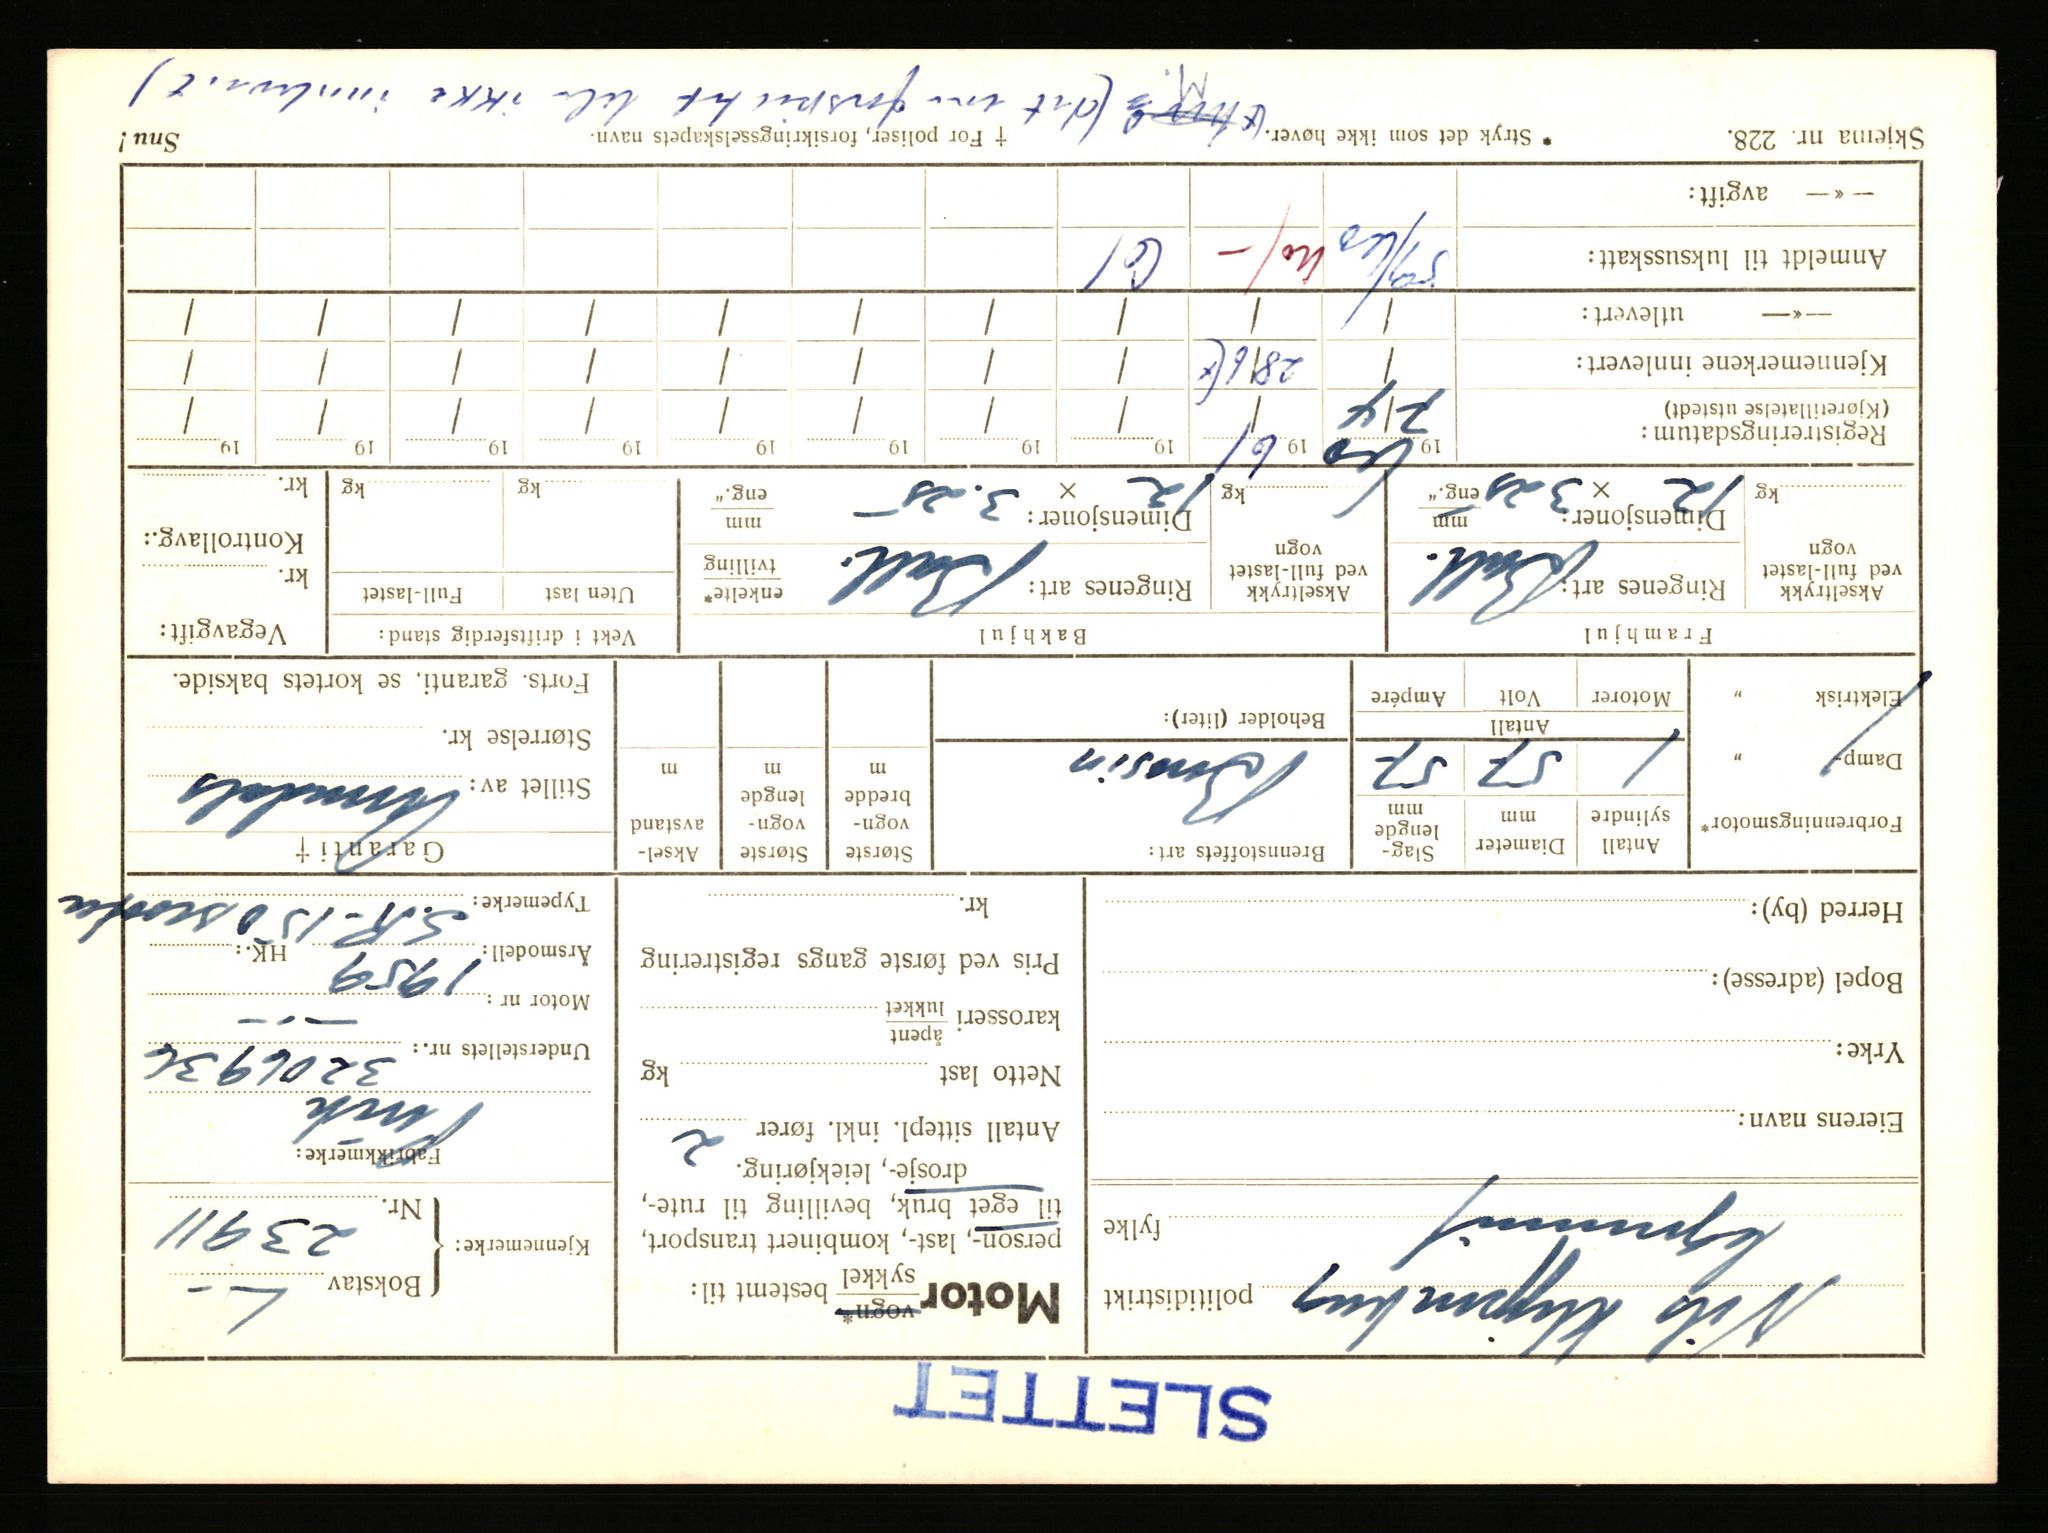 SLETTET
politidistrikt
fylke
Eierens navn:
Yrke:
Bopel (adresse):
Herred (by):
Motor vogn* sykkel bestemt til:
person-, last-, kombinert transport,
til eget bruk, bevilling til rute-,
drosje-, leiekjøring.
Antall sittepl. inkl. fører 2
Netto last kg
karosseri åpent lukket
Pris ved første gangs registrering
kr.
Kjennemerke: Bokstav L-
Nr. 23911
Fabrikkmerke: Puch
Understellets nr.: 3206936
Motor nr: — " —
Årsmodell: 1959 HK.:
Typemerke: S.R-150 scooter
Forbrenningsmotor*
Damp- "
Elektrisk "
Antall sylindre 1
Diameter mm 57
Slaglengde mm 57
Antall
Motorer Volt Ampére
Brennstoffets art: Bensin
Beholder (liter):
Største vognbredde m
Største vognlengde m
Akselavstand m
Garanti †
Stillet av:
Størrelse kr.
Forts. garanti, se kortets bakside.
Framhjul
Akseltrykk ved full-lastet vogn kg
Ringenes art: Ball.
Dimensjoner: mm eng."
12 × 3.25
Bakhjul
Akseltrykk ved full-lastet vogn kg
Ringenes art: Ball. enkelte* tvilling
Dimensjoner: mm eng."
12 × 3.25
Vekt i driftsferdig stand:
Uten last Full-lastet
kg kg
Vegavgift:
kr.
Kontrollavg.:
kr.
Registreringsdatum: 19 60 19 61 19 19 19 19 19 19 19 19
(Kjøretillatelse utstedt) 7/4 / / / / / / / / /
Kjennemerkene innlevert: / 28/6 (x / / / / / / / /
—»— utlevert: / / / / / / / / / /
Anmeldt til luksusskatt: 59/60 60/- 61
—»— avgift:
Skjema nr. 228. * Stryk det som ikke høver. † For poliser, forsikringsselskapets navn. Snu!
ikke innlevert)